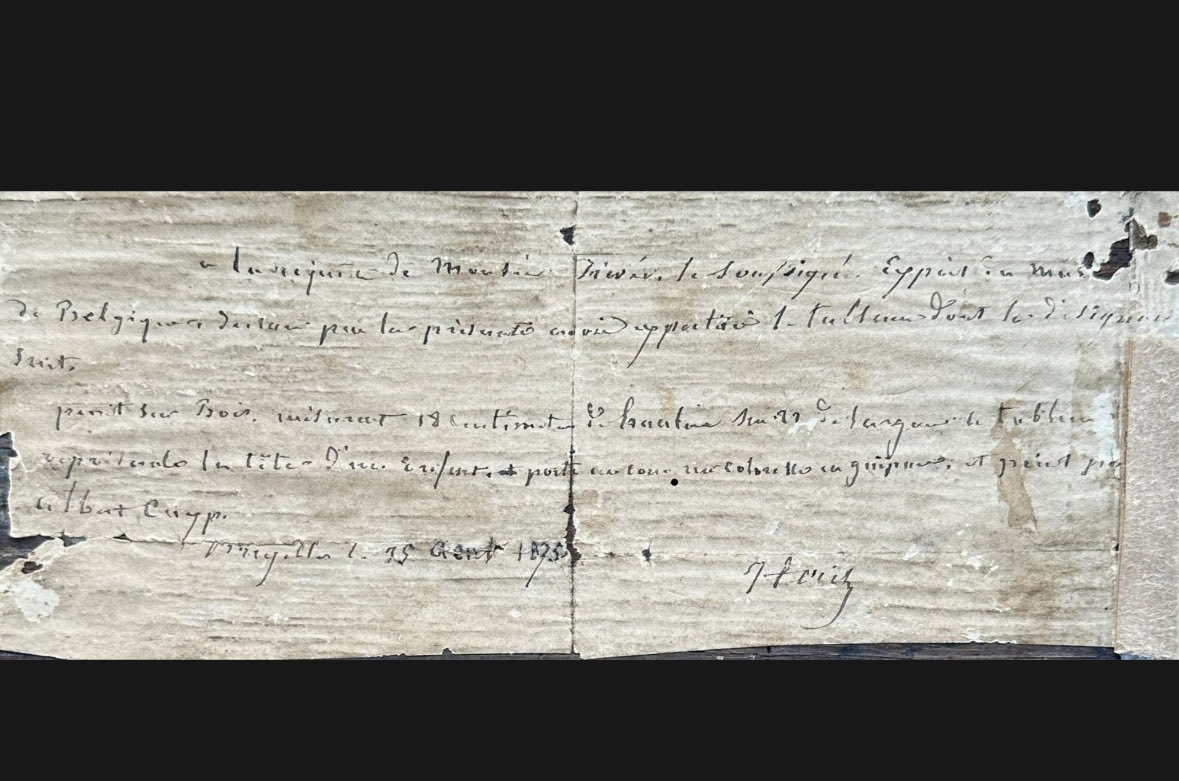 a la requête de Monsieur le soussigné. Expert du
de Belgique, déclare par la présente avoir expertisé le tableau dont la désignation
suit,
peint sur Bois, mesurant 18 centimètres de hauteur sur 22 de largeur le tableau
représente la tête d'un Enfant, porte au cou une en guipure, et peint par
albert Cuyp.
Bruxelles le 25 1875